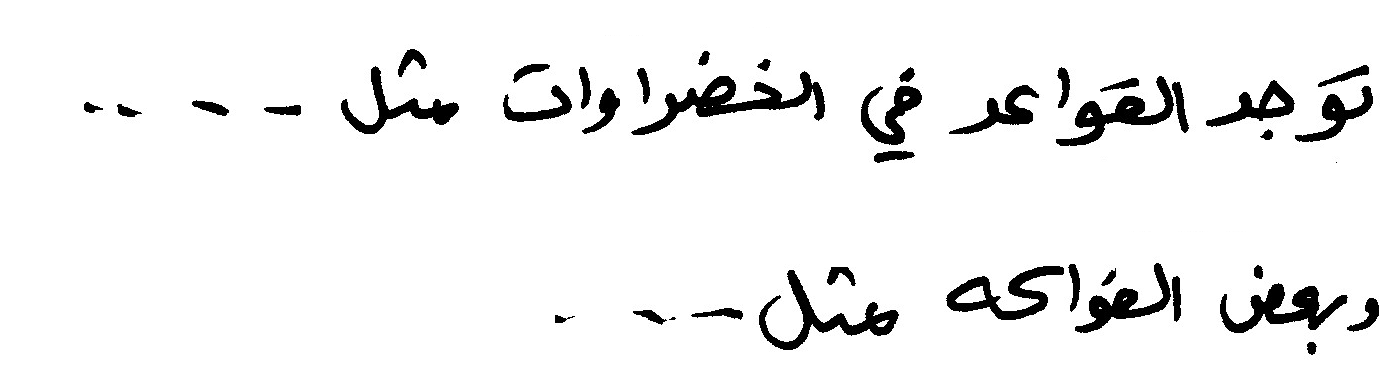 توجد القواعد في الخضراوات مثل - - ..
وبعض الفواكه مثل - - .